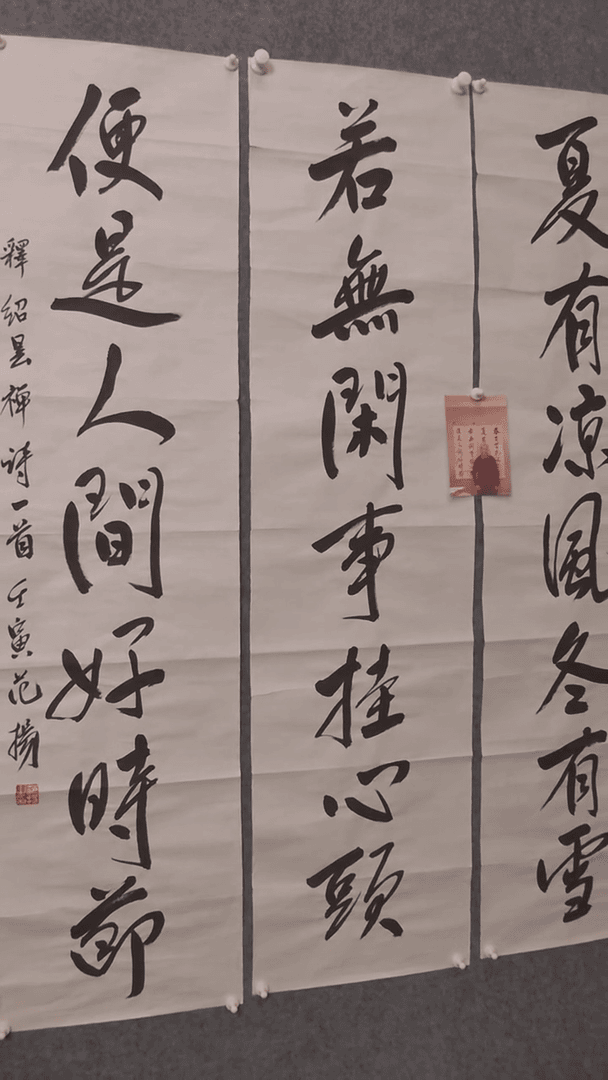 夏有凉風冬有雪
若無閑事挂心頭
便是人間好時節
釋紹曇禅詩一首壬寅范揚